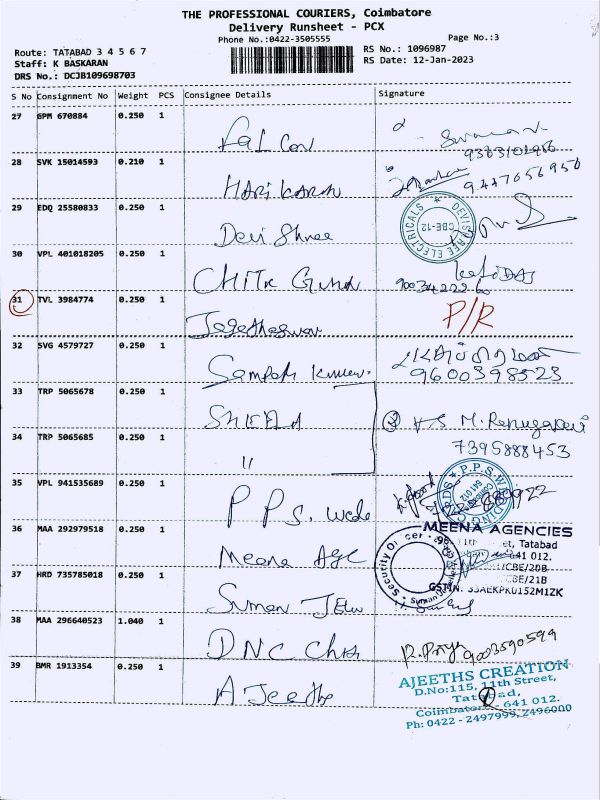 THE PROFESSIONAL COURIERS, Coimbatore
Delivery Runsheet - PCX
Phone No.:0422-3505555
Page No.:3
Route: TATABAD 3 4 5 6 7
Staff: K BASKARAN
DRS No.: DCJB109698703
RS No.: 1096987
RS Date: 12-Jan-2023
S No Consignment No Weight PCS Consignee Details Signature
27 GPM 670884 0.250 1 Fal Con
28 SVK 15014593 0.210 1 HARi KARAN
29 EDQ 25580833 0.250 1 Devi Shree
DEVISHREE ELECTRICALS CBE-12
30 VPL 401018205 0.250 1 CHITK
31 TVL 3984774 0.250 1 P/R
32 SVG 4579727 0.250 1 Sampath Kumar.
9600398523
33 TRP 5065678 0.250 1 SHEELA M. Renugadevi
34 TRP 5065685 0.250 1 " 7395888453
35 VPL 941535689 0.250 1 P P S. Wedd
P.P.S. WEDDING CARDS 641 012
36 MAA 292979518 0.250 1 Meena Age
MEENA AGENCIES
11th Street, Tatabad
641 012.
/CBE/20B
/CBE/21B
GSTIN: 33AEKPK0152M1ZK
37 HRD 735785018 0.250 1 Suman Jew
Security Officer
38 MAA 296640523 1.040 1 DNC Chits
P. Priya 9003590599
39 BMR 1913354 0.250 1 AJeeths
AJEETHS CREATION
D.No:115, 11th Street,
Tatabad,
Coimbatore - 641 012.
Ph: 0422 - 2497999, 2496000